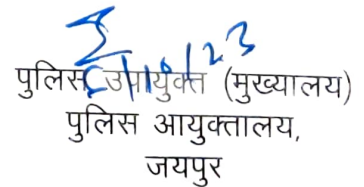 पुलिस उपायुक्त (मुख्यालय)
पुलिस आयुक्तालय,
जयपुर